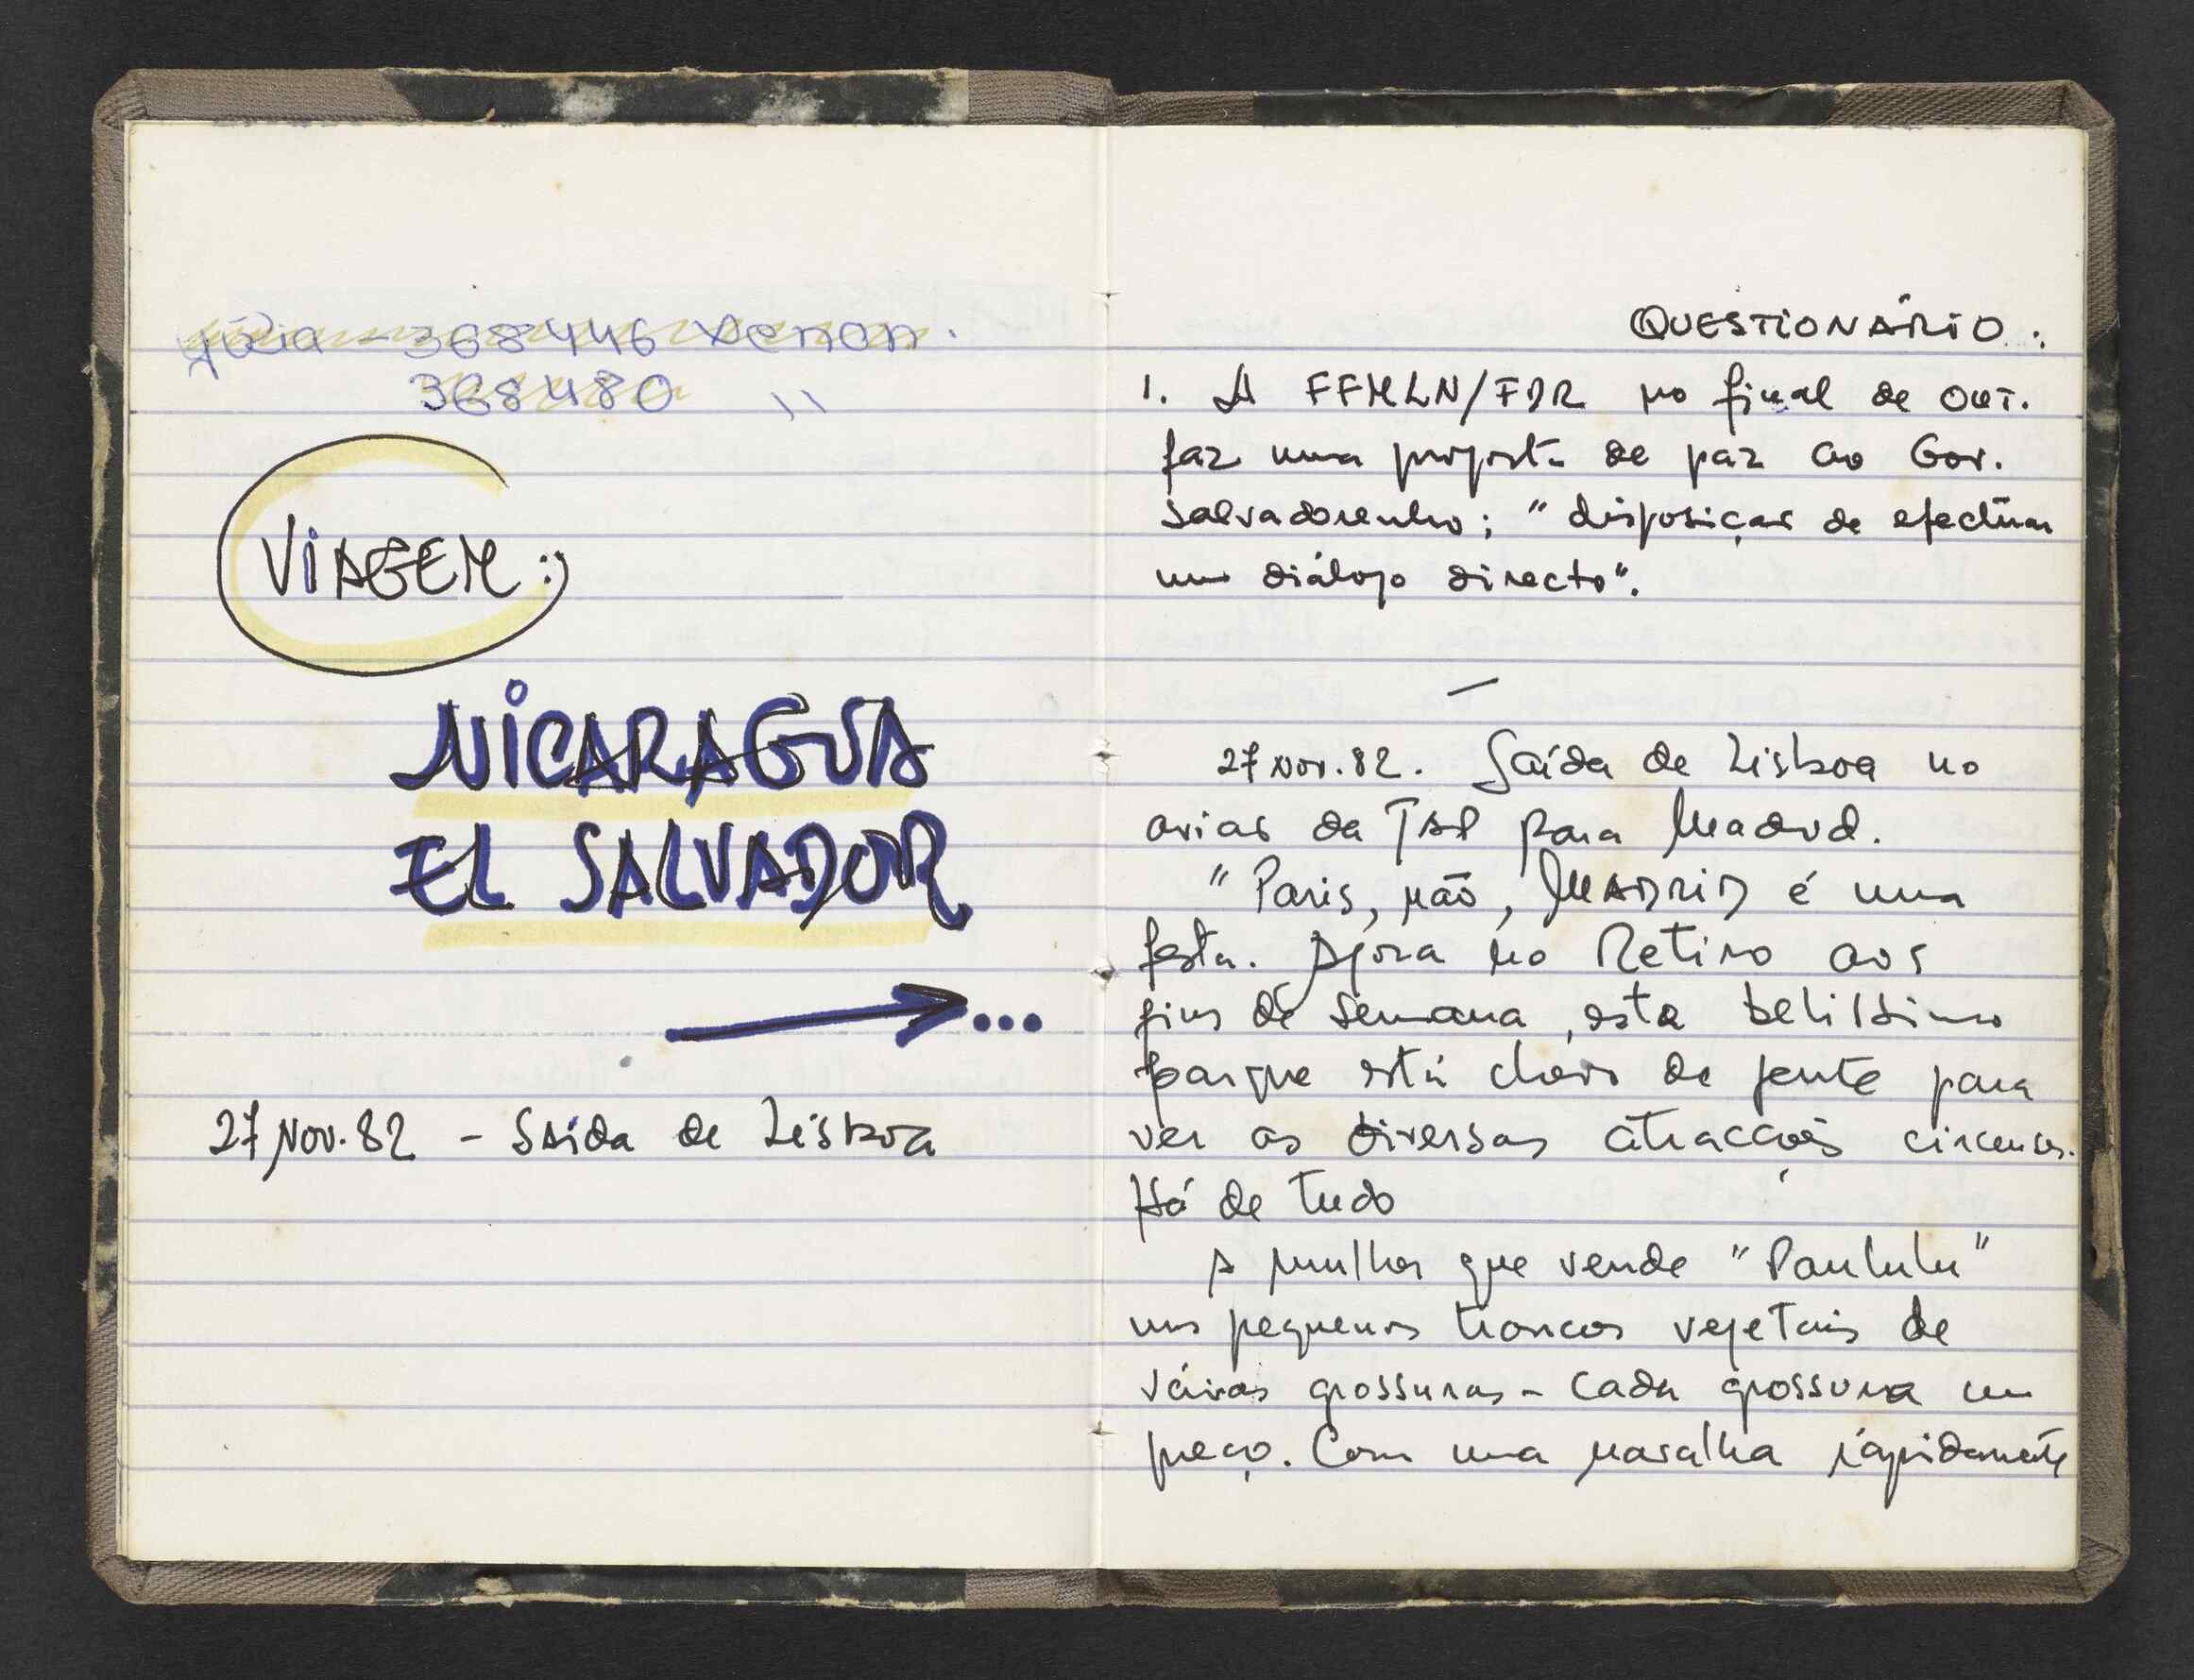 Júlia - 368446
368480 "
VIAGEM:
NICARAGUA
EL SALVADOR
→...
27 Nov. 82 - SAída de Lisboa
QUESTIONÁRIO:
1. A FFMLN/FDR no final de OUT.
faz uma proposta de paz ao Gov.
Salvadorenho; "disposição de efectuar
um diálogo directo".
—
27 Nov. 82. Saída de Lisboa no
avião da TAP para Madrid.
"Paris, não, MADRID é uma
festa. Agora no Retiro aos
fins de semana, esta belissimo
parque está cheio de gente para
ver as diversas atracções circenses.
Há de tudo
A mulher que vende "Paululu"
uns pequenos troncos vegetais de
várias grossuras - cada grossura um
preço. Com uma navalha rápidamente